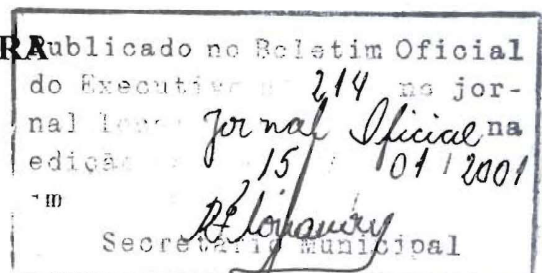 RA
Publicado no Boletim Oficial
do Executivo nº 214 no jor-
nal Jornal Oficial na
edição 15 / 01 / 2001
Secretário Municipal